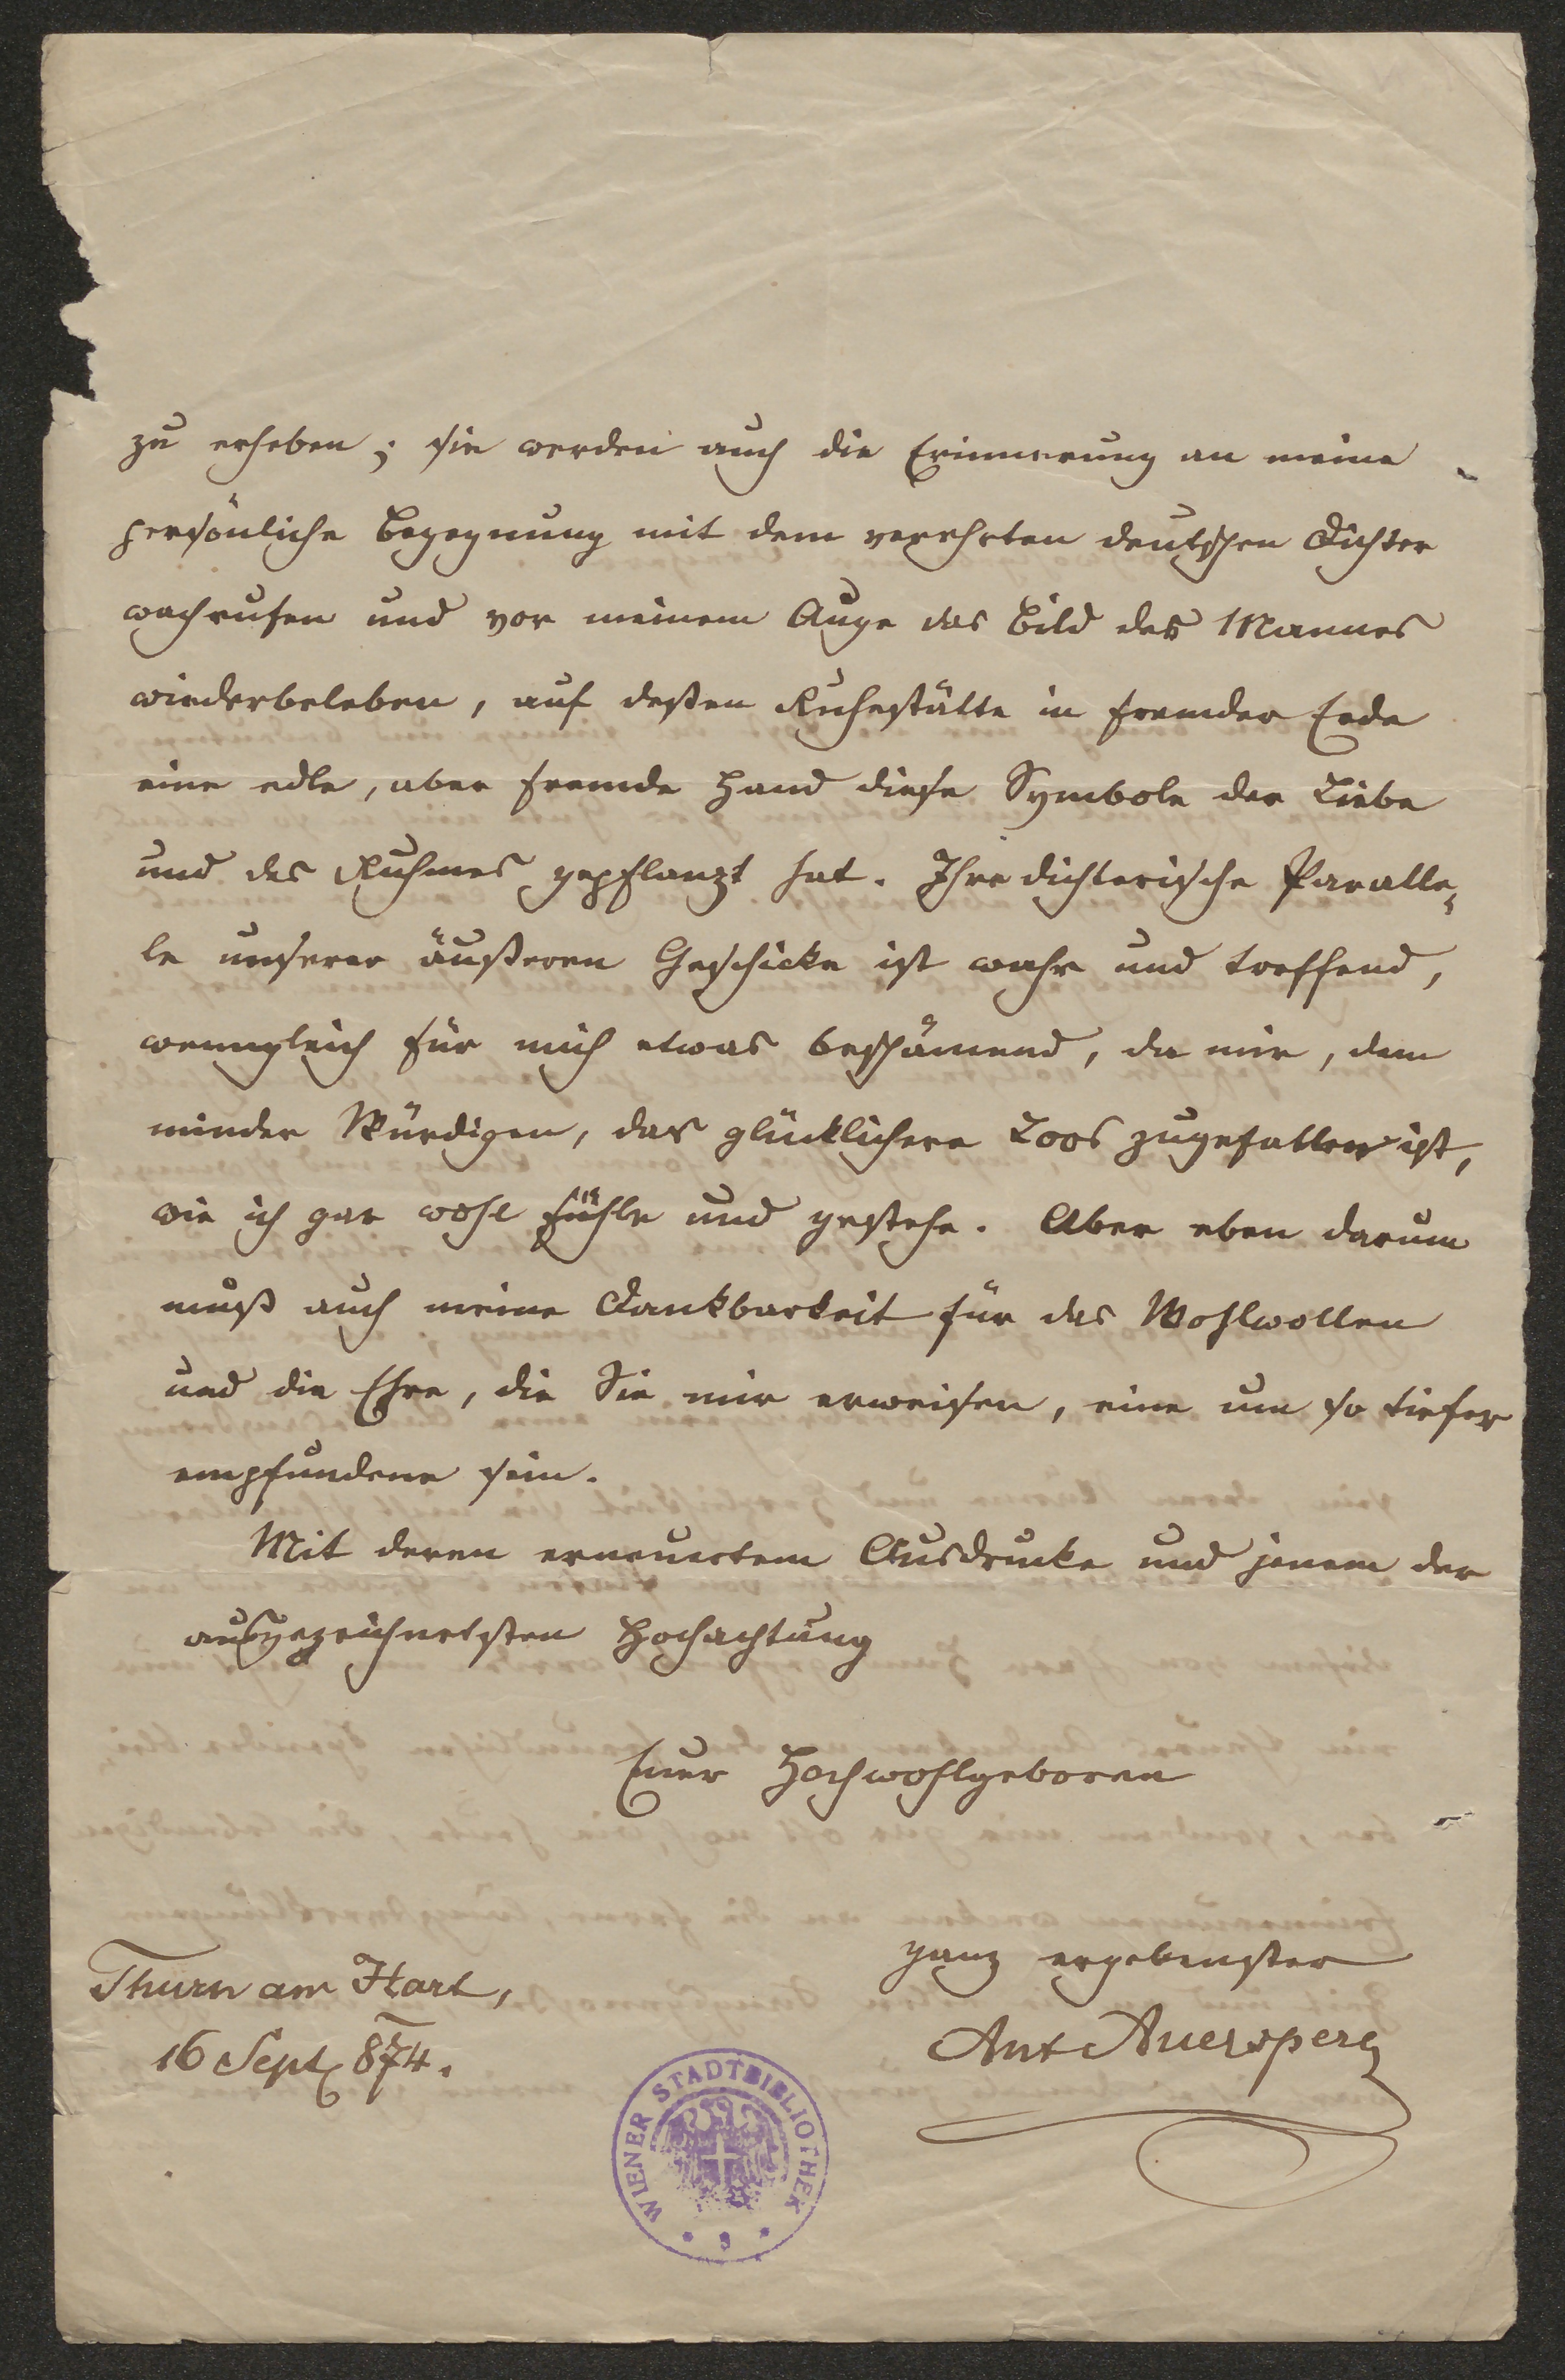 zu erheben; sie werden auch die Erinnerung an meine
persönliche Begegnung mit dem verehrten deutschen Dichter
wachrufen und vor meinem Auge das Bild des Mannes
wiederbeleben, auf deßen Ruhestätte in fremder Erde
eine edle, aber fremde Hand diese Symbole der Liebe
und des Ruhmes gepflanzt hat. Ihre dichterische Paralle-
le unserer äußeren Geschicke ist wahr und treffend,
wenngleich für mich etwas beschämend, da mir, dem
minder Würdigen, das glücklichere Loos zugefallen ist,
wie ich gar wohl fühle und gestehe. Aber eben darum
muß auch meine Dankbarkeit für das Wohlwollen
und die Ehre, die Sie mir erweisen, eine um so tiefer
empfundene sein.
Mit deren erneuertem Ausdrucke und jenem der
ausgezeichnetsten Hochachtung
Euer Hochwohlgeboren
ganz ergebenster
Ant Auersperg
Thurn am Hart,
16 Sept 874.
WIENER STADTBIBLIOTHEK